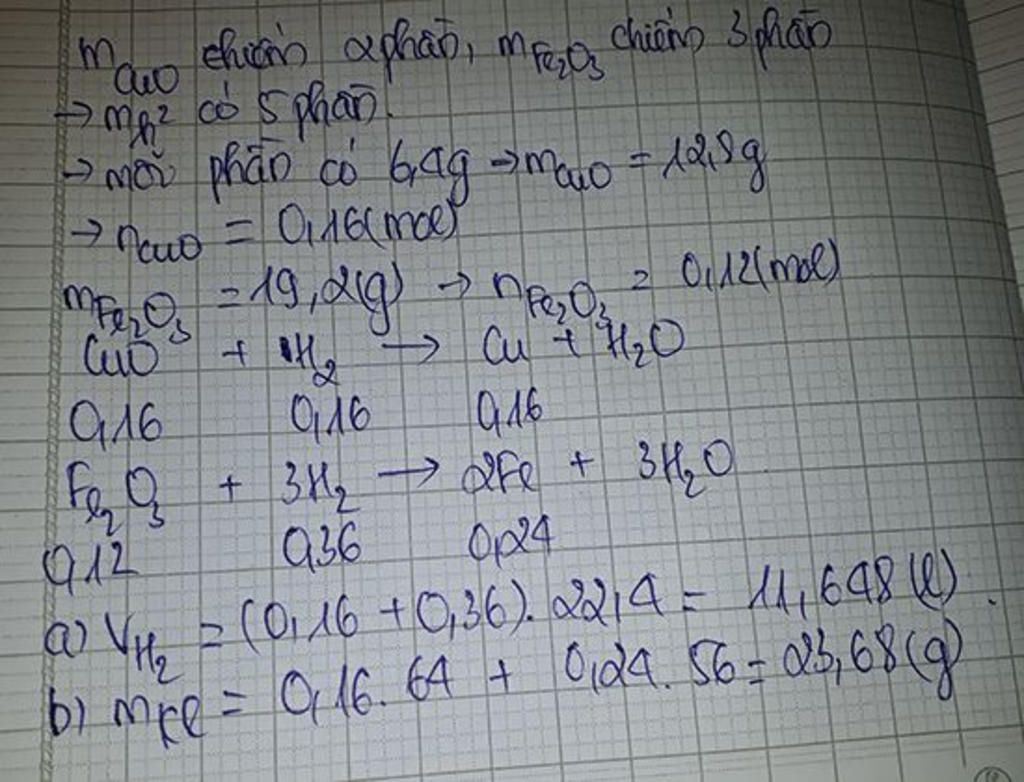 mCuO chiếm 2 phần, mFe2O3 chiếm 3 phần
→ mh² có 5 phần.
→ mỗi phần có 6,4g → mCuO = 12,8g
→ nCuO = 0,16(mol)
mFe2O3 = 19,2(g) → nFe2O3 = 0,12(mol)
CuO + H2 → Cu + H2O
0,16 0,16 0,16
Fe2O3 + 3H2 → 2Fe + 3H2O
0,12 0,36 0,24
a) VH2 = (0,16 + 0,36). 22,4 = 11,648(l).
b) mKl = 0,16. 64 + 0,24. 56 = 23,68(g)